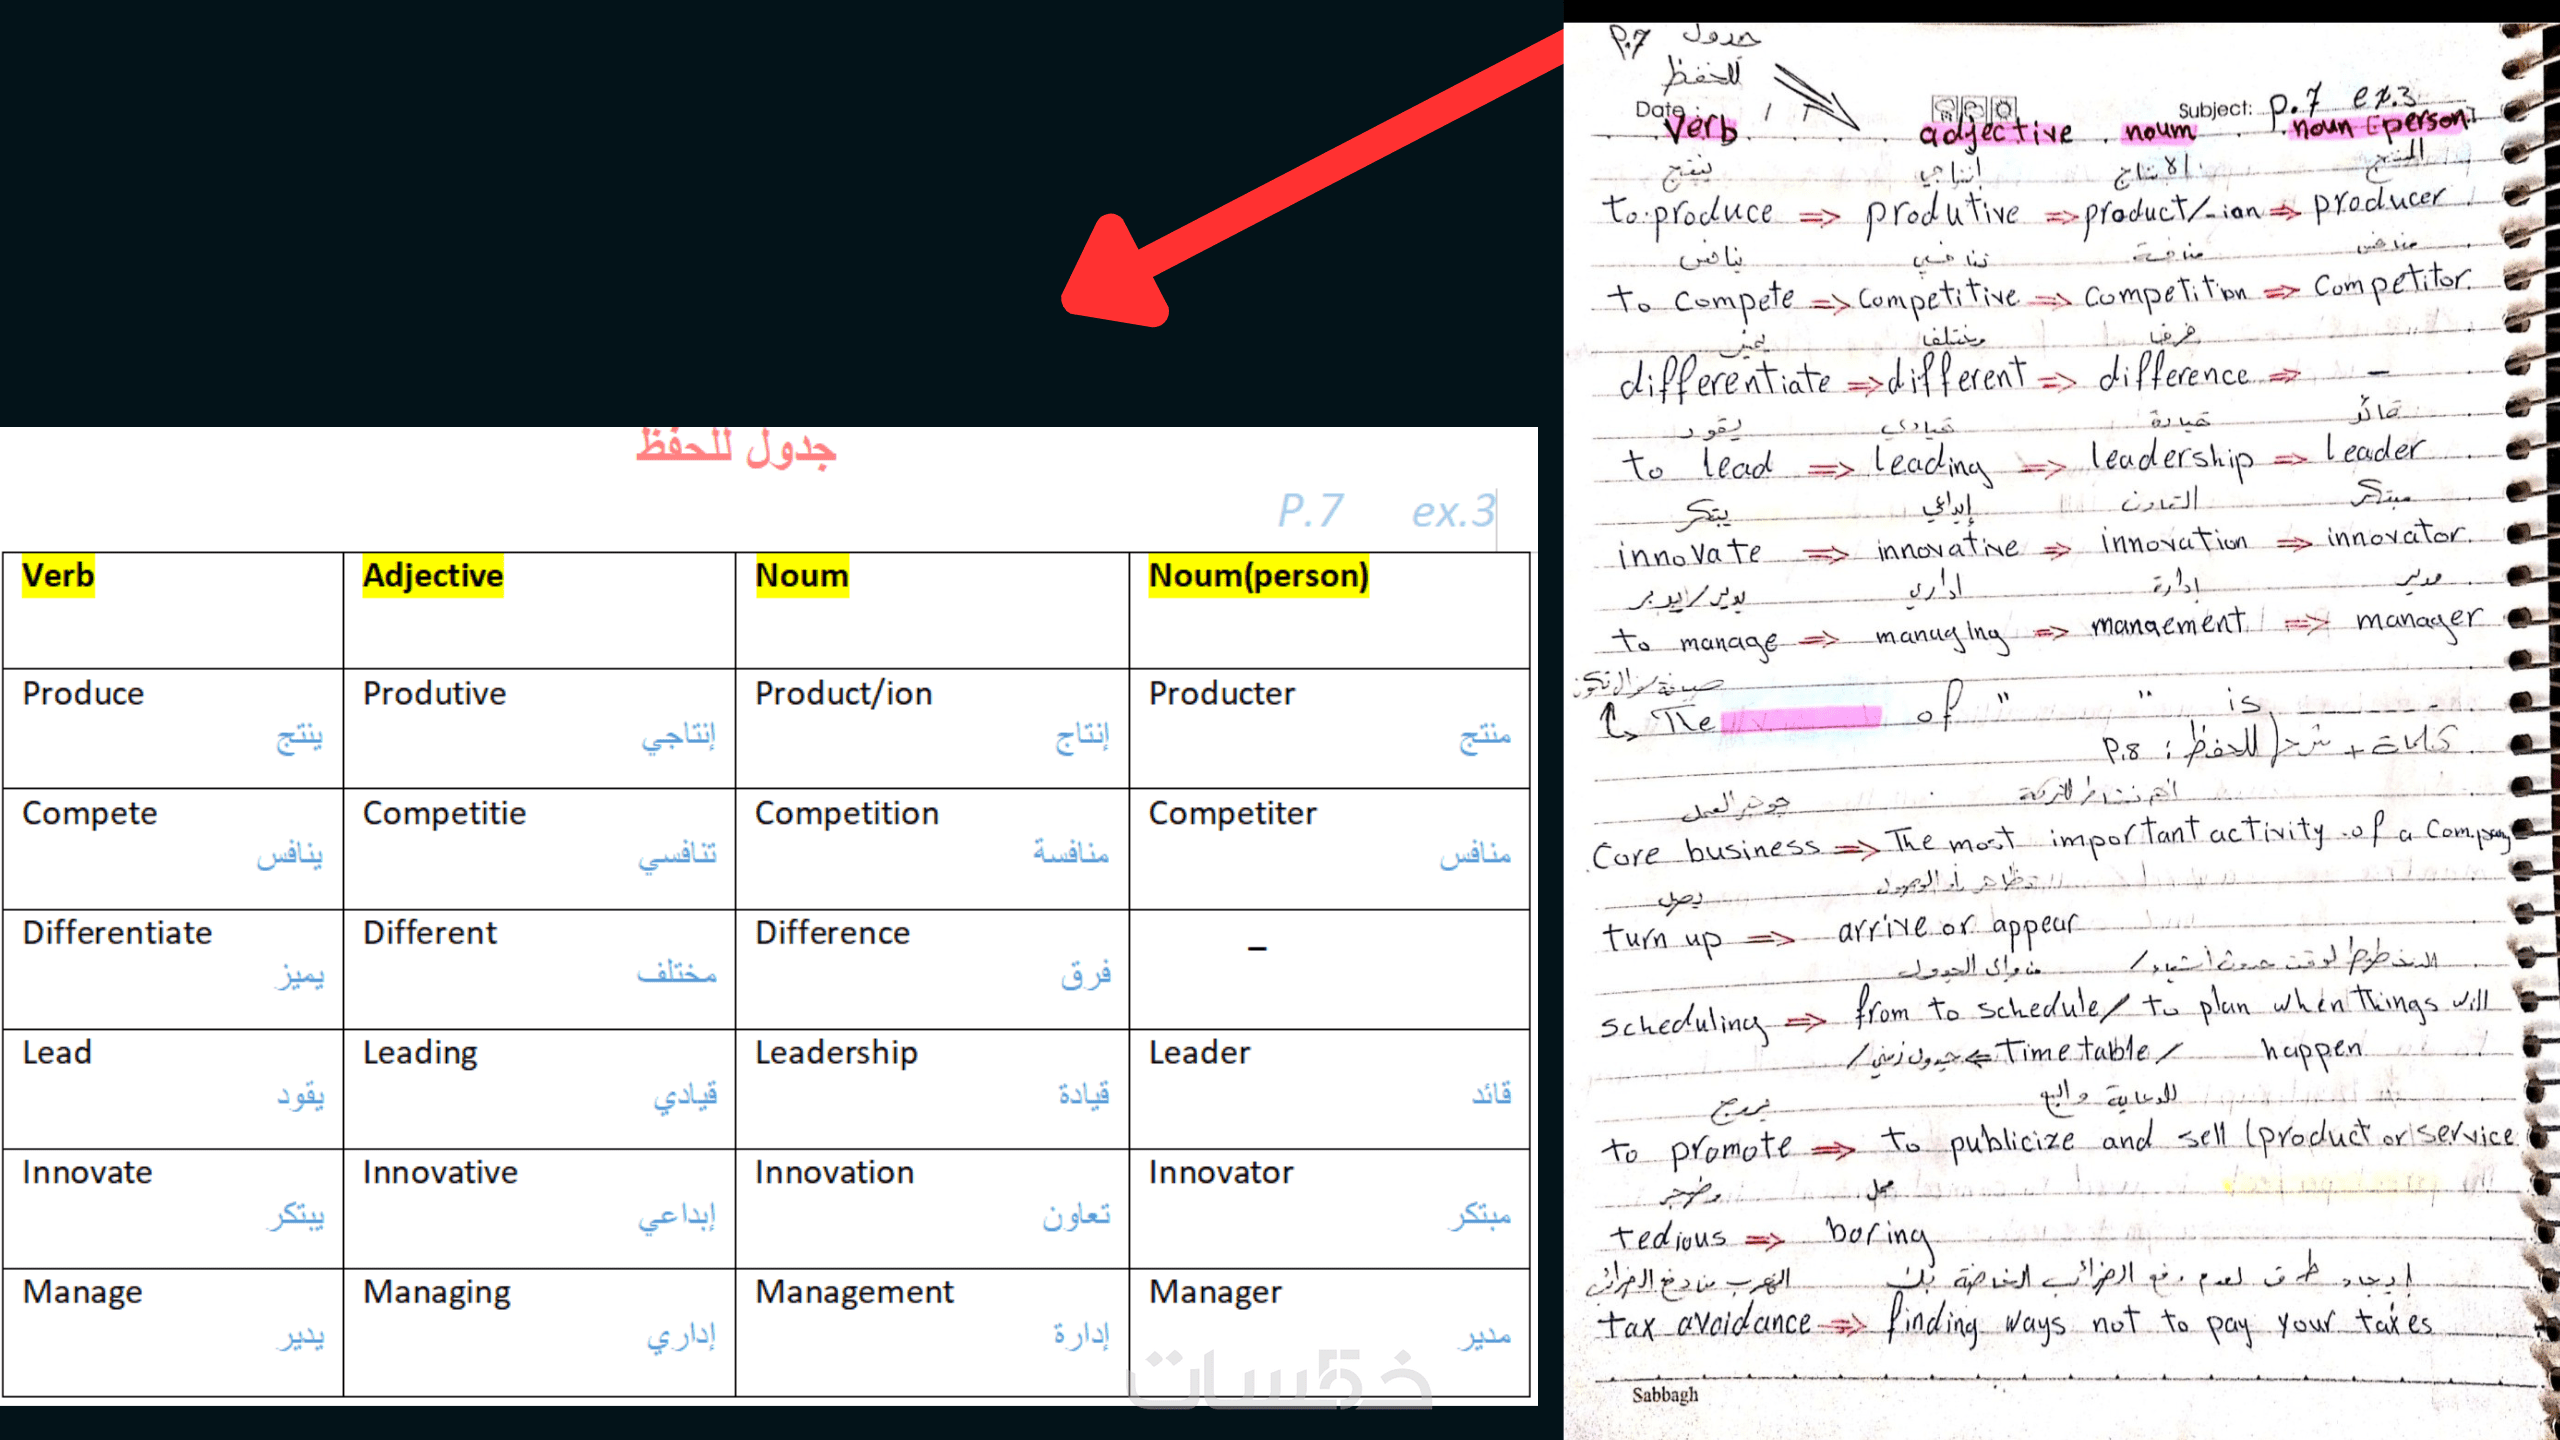 جدول للحفظ
P.7 ex.3
Verb Adjective Noum Noum(person)
Produce Produtive Product/ion Producter
ينتج إنتاجي إنتاج منتج
Compete Competitie Competition Competiter
ينافس تنافسي منافسة منافس
Differentiate Different Difference –
يميز مختلف فرق
Lead Leading Leadership Leader
يقود قيادي قيادة قائد
Innovate Innovative Innovation Innovator
يبتكر إبداعي تعاون مبتكر
Manage Managing Management Manager
يدير إداري إدارة مدير
خمسات
P.7 جدول
للحفظ
Date: / / Subject: p.7 ex.3
Verb adjective noum noun [person]
ينتج إنتاجي الانتاج المنتج
to produce => produtive => product/-ion => producer
ينافس تنافسي منافسة منافس
to compete => competitive => competition => competitor.
يميز مختلف فرق
differentiate => different => difference => –
يقود قيادي قيادة قائد
to lead => leading => leadership => leader
يبتكر إبداعي التعاون مبتكر
innovate => innovative => innovation => innovator.
يدير/يدبر اداري إدارة مدير
to manage => managing => manaement => manager
صيغة سؤال تكون
The of " " is
كلمات + شرح للحفظ : P.8
جوهر العمل اهم نشاط للشركة
Core business => The most important activity of a company
يصل
turn up => arrive or appear
scheduling => from to schedule/ to plan when things will
/جدول زمني <= Time table/ happen
يروج للدعاية والبيع
to promote => to publicize and sell (product or service
مضجر ممل
tedious => boring
التهرب من دفع الضرائب إيجاد طرق لعدم دفع الضرائب الخاصة بك
tax avoidance => finding ways not to pay your taxes
Sabbagh